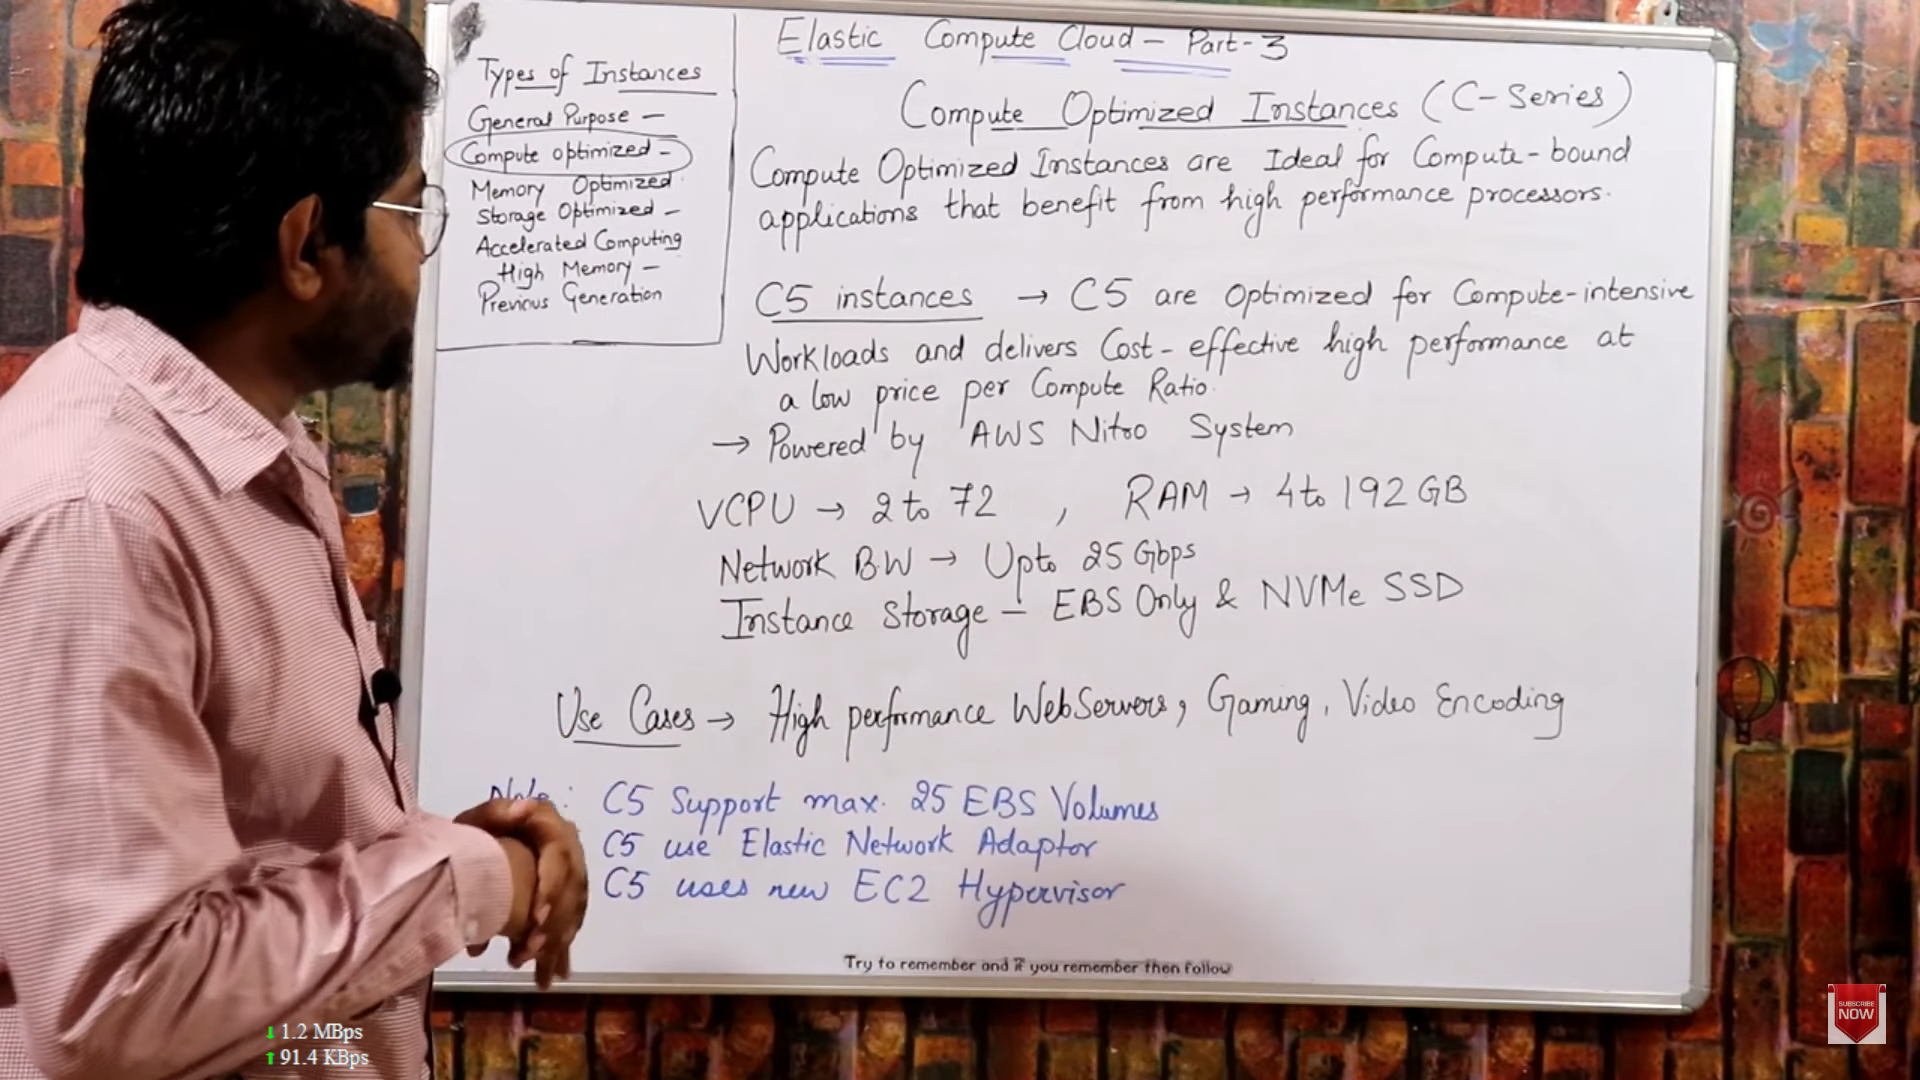 Elastic Compute Cloud - Part-3
Types of Instances
General Purpose -
Compute optimized -
Memory Optimized
Storage Optimized -
Accelerated Computing
High Memory -
Previous Generation
Compute Optimized Instances (C-Series)
Compute Optimized Instances are Ideal for Compute-bound
applications that benefit from high performance processors.
C5 instances → C5 are Optimized for Compute-intensive
Workloads and delivers Cost-effective high performance at
a low price per Compute Ratio.
→ Powered by AWS Nitro System
VCPU → 2 to 72 , RAM → 4 to 192 GB
Network BW → Upto 25 Gbps
Instance Storage - EBS Only & NVMe SSD
Use Cases → High performance WebServers, Gaming, Video Encoding
Note: C5 Support max. 25 EBS Volumes
C5 use Elastic Network Adaptor
C5 uses new EC2 Hypervisor
Try to remember and if you remember then follow
SUBSCRIBE
NOW
↓ 1.2 MBps
↑ 91.4 KBps